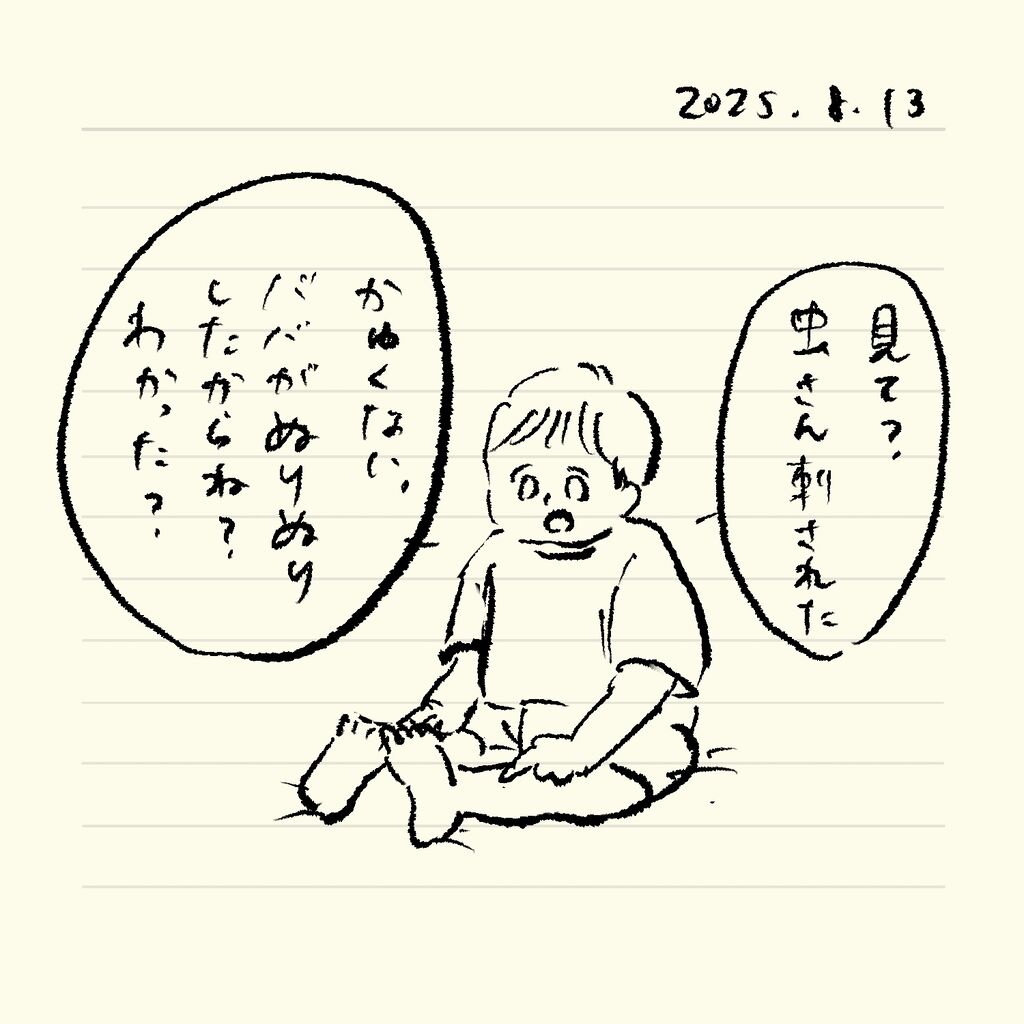 2025.8.13
見て?
虫さん刺された
かゆくない、
ババがぬりぬり
したからね?
わかった?